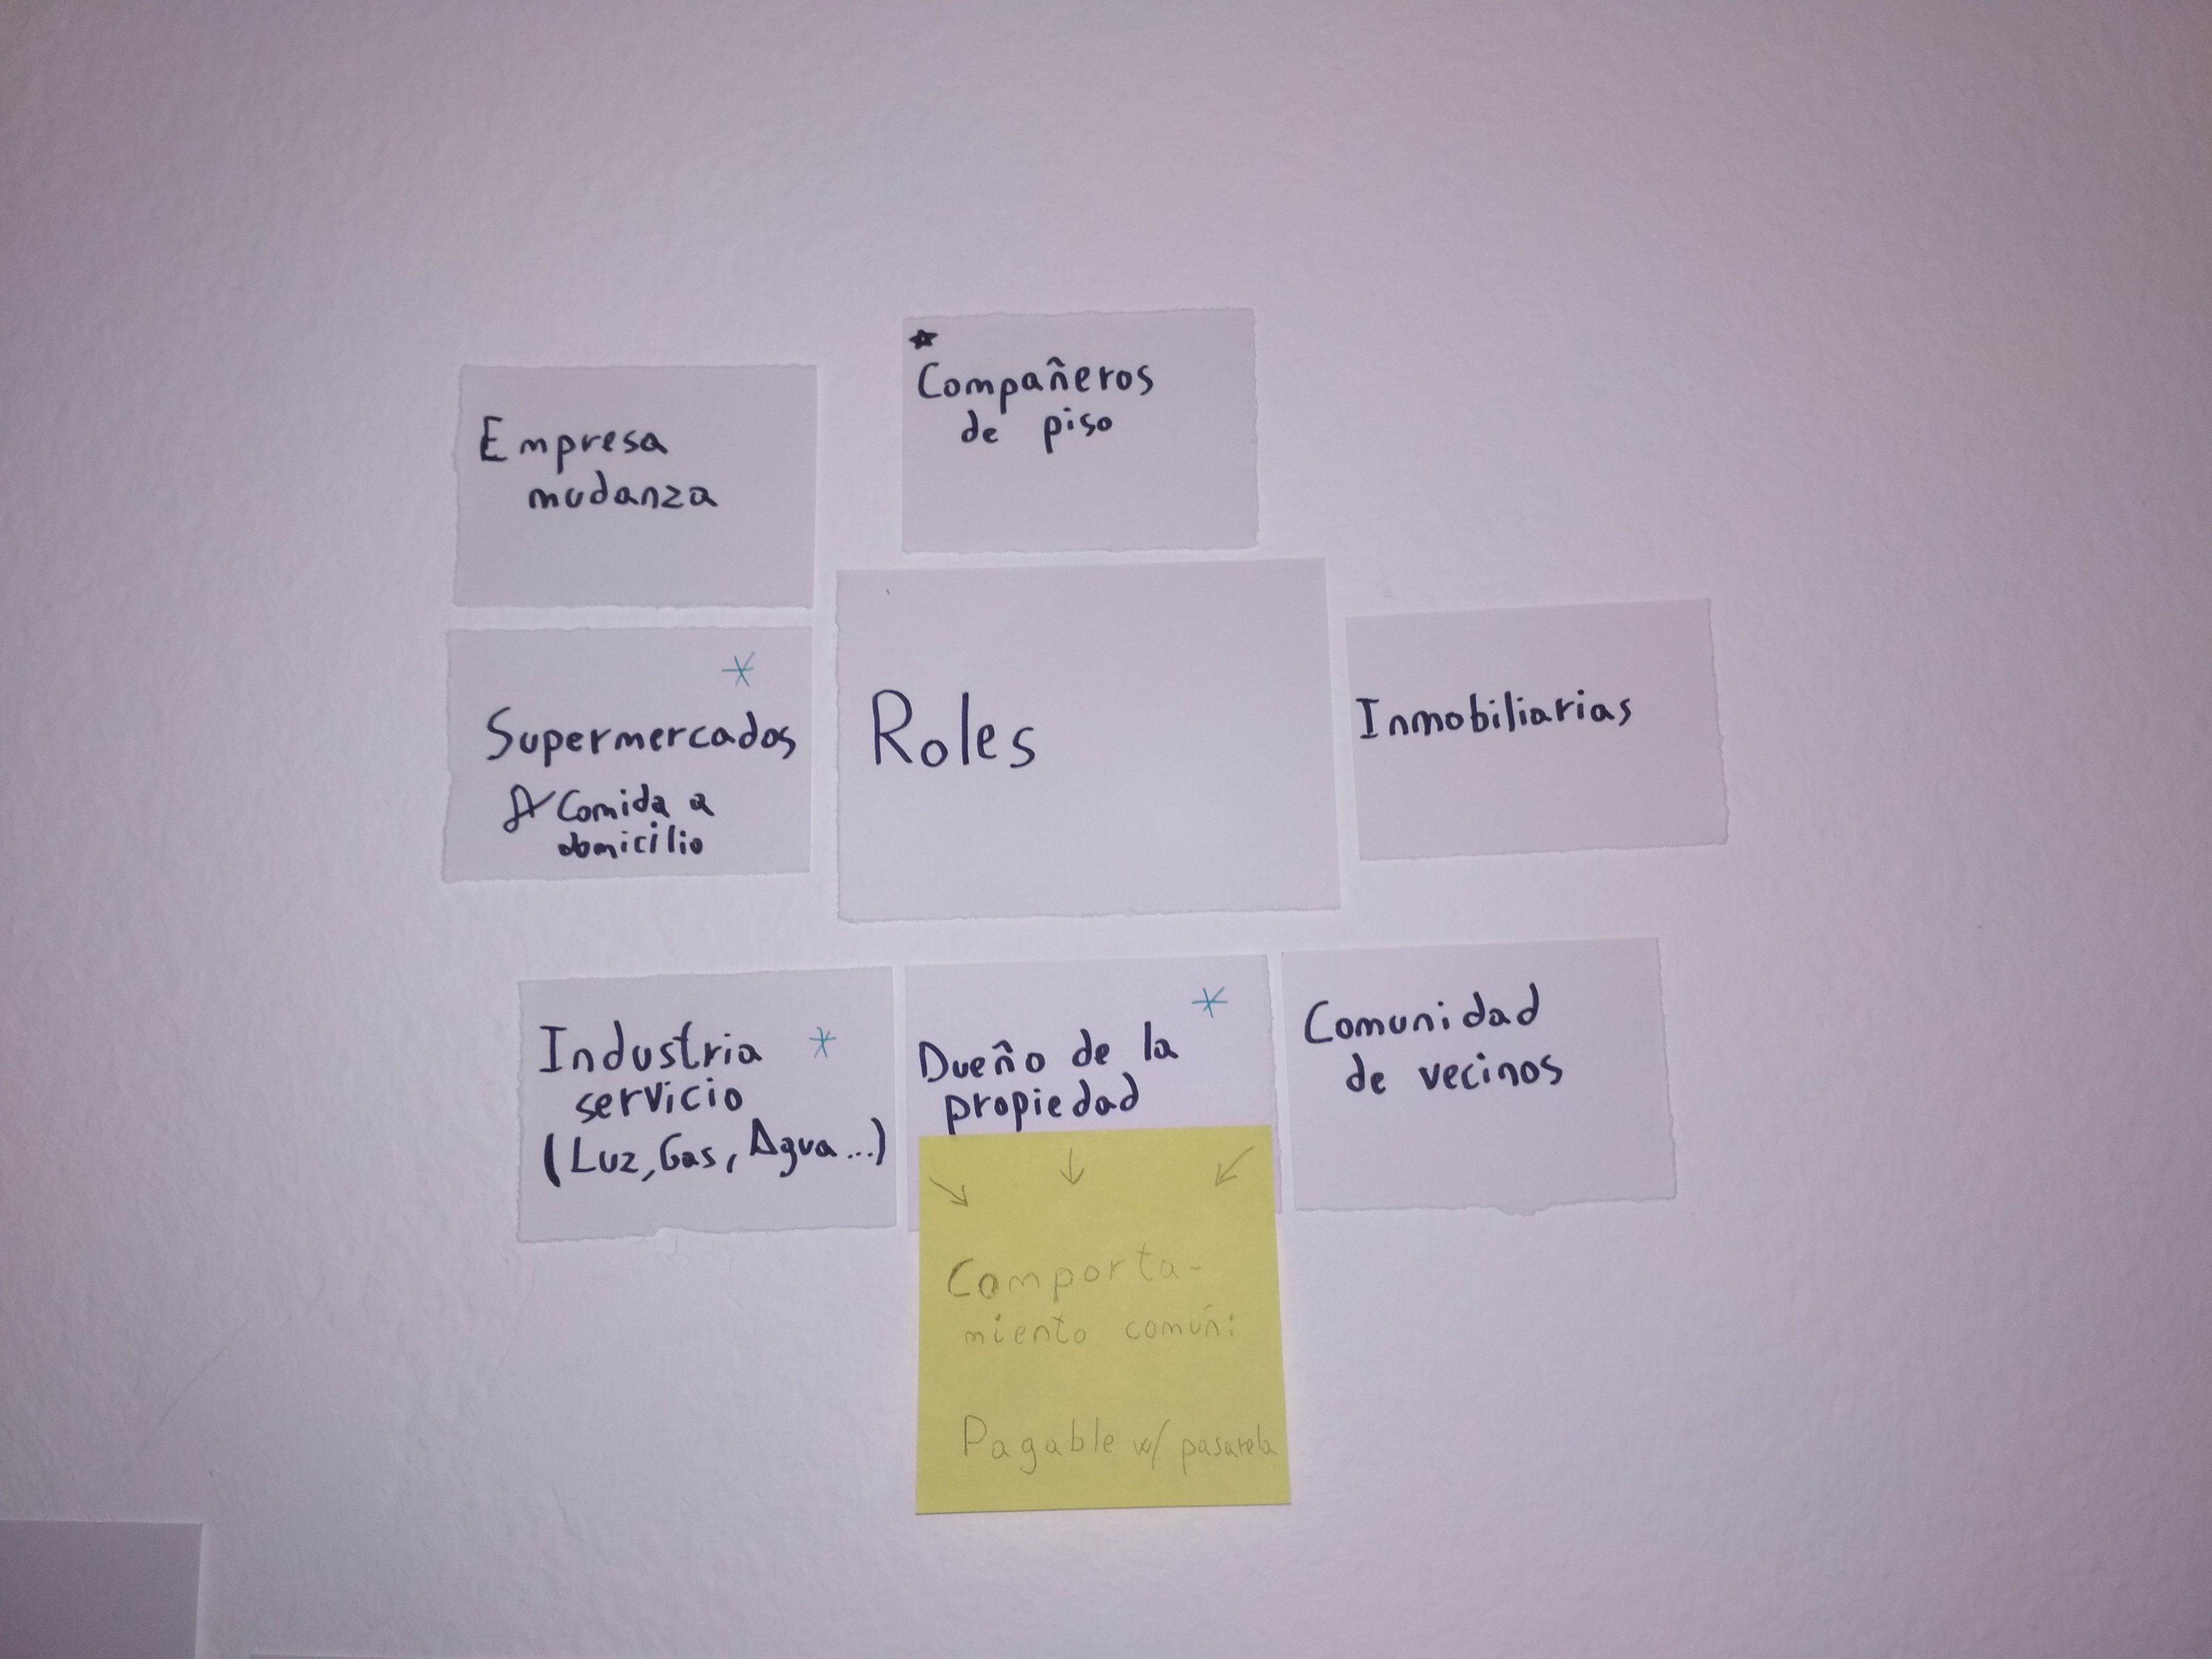 ★
Compañeros
de piso
Empresa
mudanza
*
Supermercados
Comida a
domicilio
Roles
Inmobiliarias
Industria *
servicio
(Luz, Gas, Agua...)
*
Dueño de la
propiedad
Comunidad
de vecinos
Comporta-
miento común:
Pagable w/ pasarela